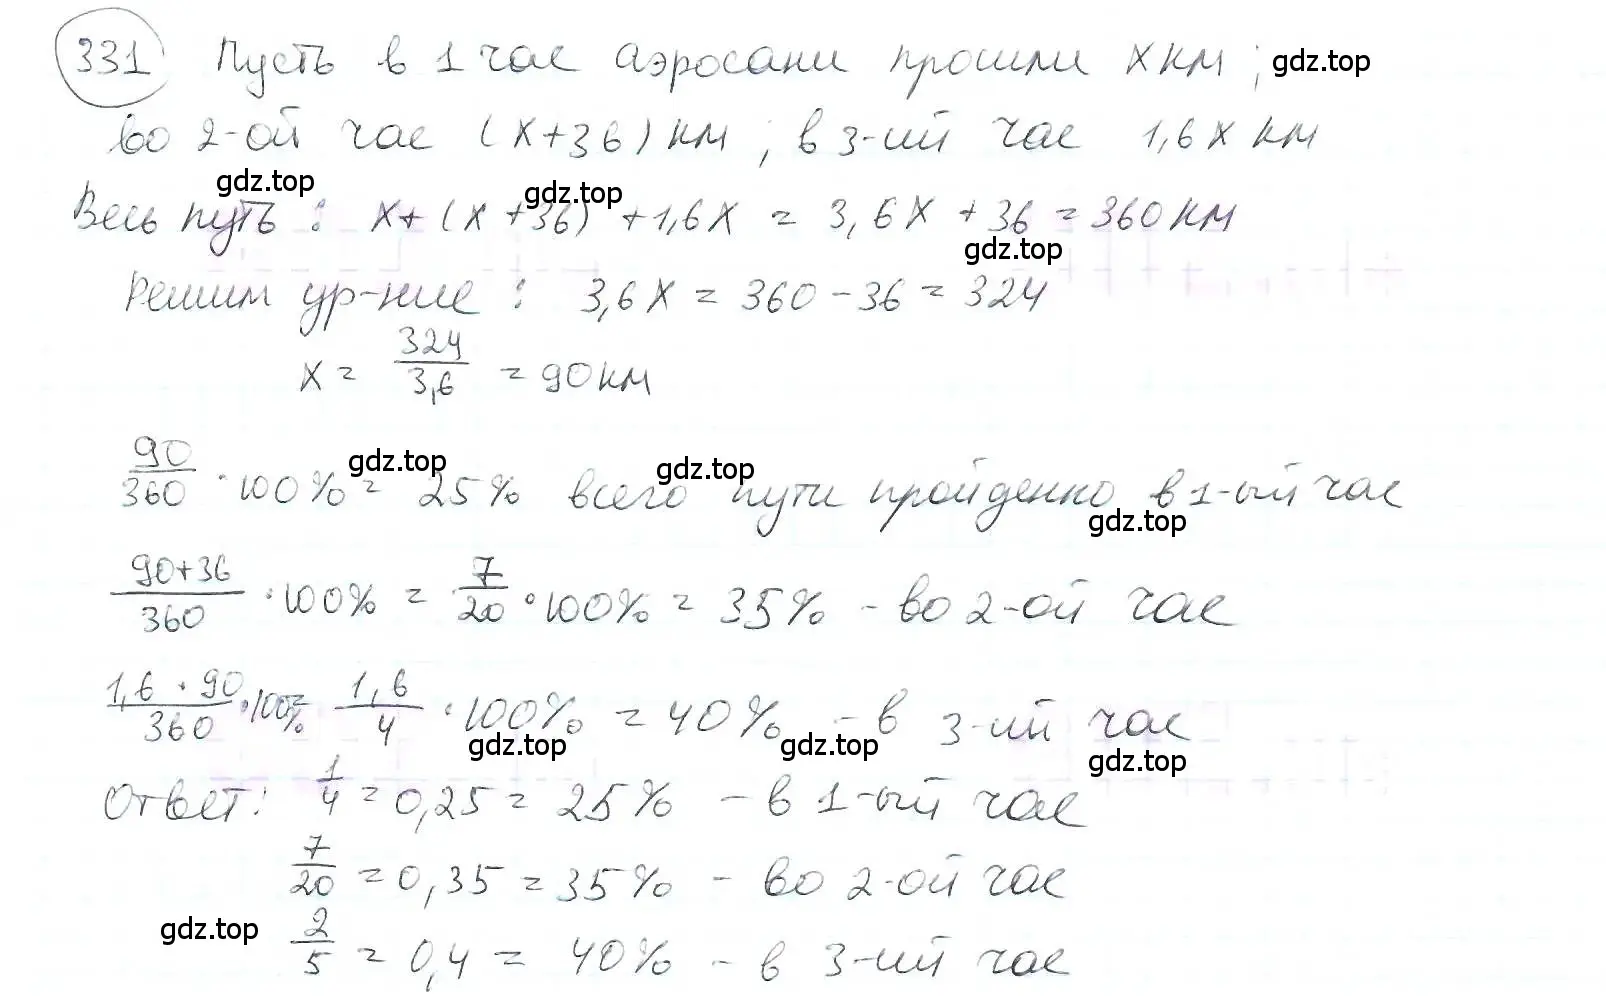 331 Пусть в 1 час аэросани прошли x км; gdz.top
во 2-ой час (x+36) км; в 3-ий час 1,6x км
gdz.top gdz.top
Весь путь: x+(x+36)+1,6x = 3,6x+36 = 360 км
gdz.top
Решим ур-ние: 3,6x = 360-36 = 324
x = 324/3,6 = 90 км
gdz.top gdz.top
90/360 · 100% = 25% всего пути пройденно в 1-ый час
gdz.top
90+36/360 · 100% = 7/20 · 100% = 35% - во 2-ой час
1,6 · 90/360 · 100% = 1,6/4 · 100% = 40% - в 3-ий час
gdz.top gdz.top gdz.top
Ответ: 1/4 = 0,25 = 25% - в 1-ый час
7/20 = 0,35 = 35% - во 2-ой час
gdz.top 2/5 = 0,4 = 40% - в 3-ий час